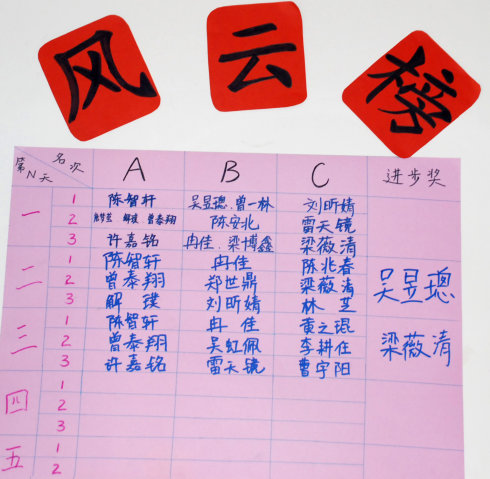 风云榜
名次
第N天 A B C 进步奖
一 1 陈智轩 吴昱璁、曾一林 刘昕婧
2 解璞 曾泰翔 陈安北 雷天镜
3 许嘉铭 冉佳、梁博鑫 梁薇清
二 1 陈智轩 冉佳 陈兆春 吴昱璁
2 曾泰翔 郑世鼎 梁薇清
3 解璞 刘昕婧 林芝
三 1 陈智轩 冉佳 黄之琨 梁薇清
2 曾泰翔 吴虹佩 李耕任
3 许嘉铭 雷天镜 曹宇阳
四 1
2
3
五 1
2